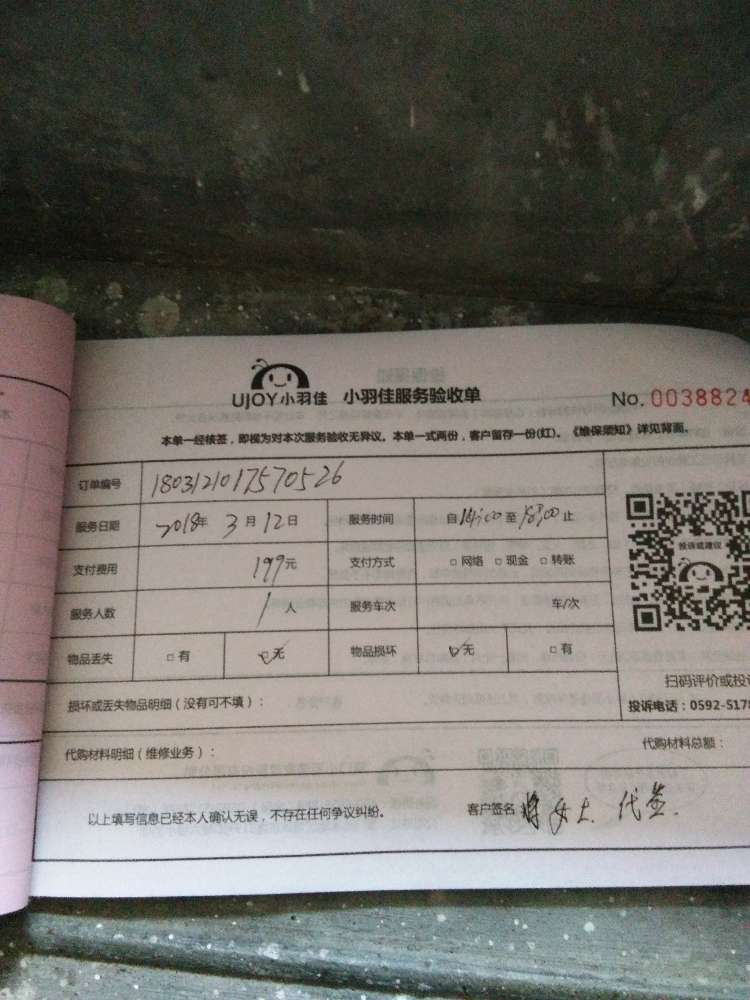 UJOY小羽佳 小羽佳服务验收单 No. 0038824
本单一经核签，即视为对本次服务验收无异议。本单一式两份，客户留存一份(红)。《维保须知》详见背面。
订单编号 1803121017570526
服务日期 2018年 3月12日 服务时间 自14:00至18:00止
支付费用 199元 支付方式 □网络 □现金 □转账
投诉或建议
服务人数 1人 服务车次 车/次
物品丢失 □有 □无 物品损坏 □无 □有
扫码评价或投诉
损坏或丢失物品明细（没有可不填）：
投诉电话：0592-5178
代购材料明细（维修业务）： 代购材料总额：
以上填写信息已经本人确认无误，不存在任何争议纠纷。 客户签名 女士 代签.